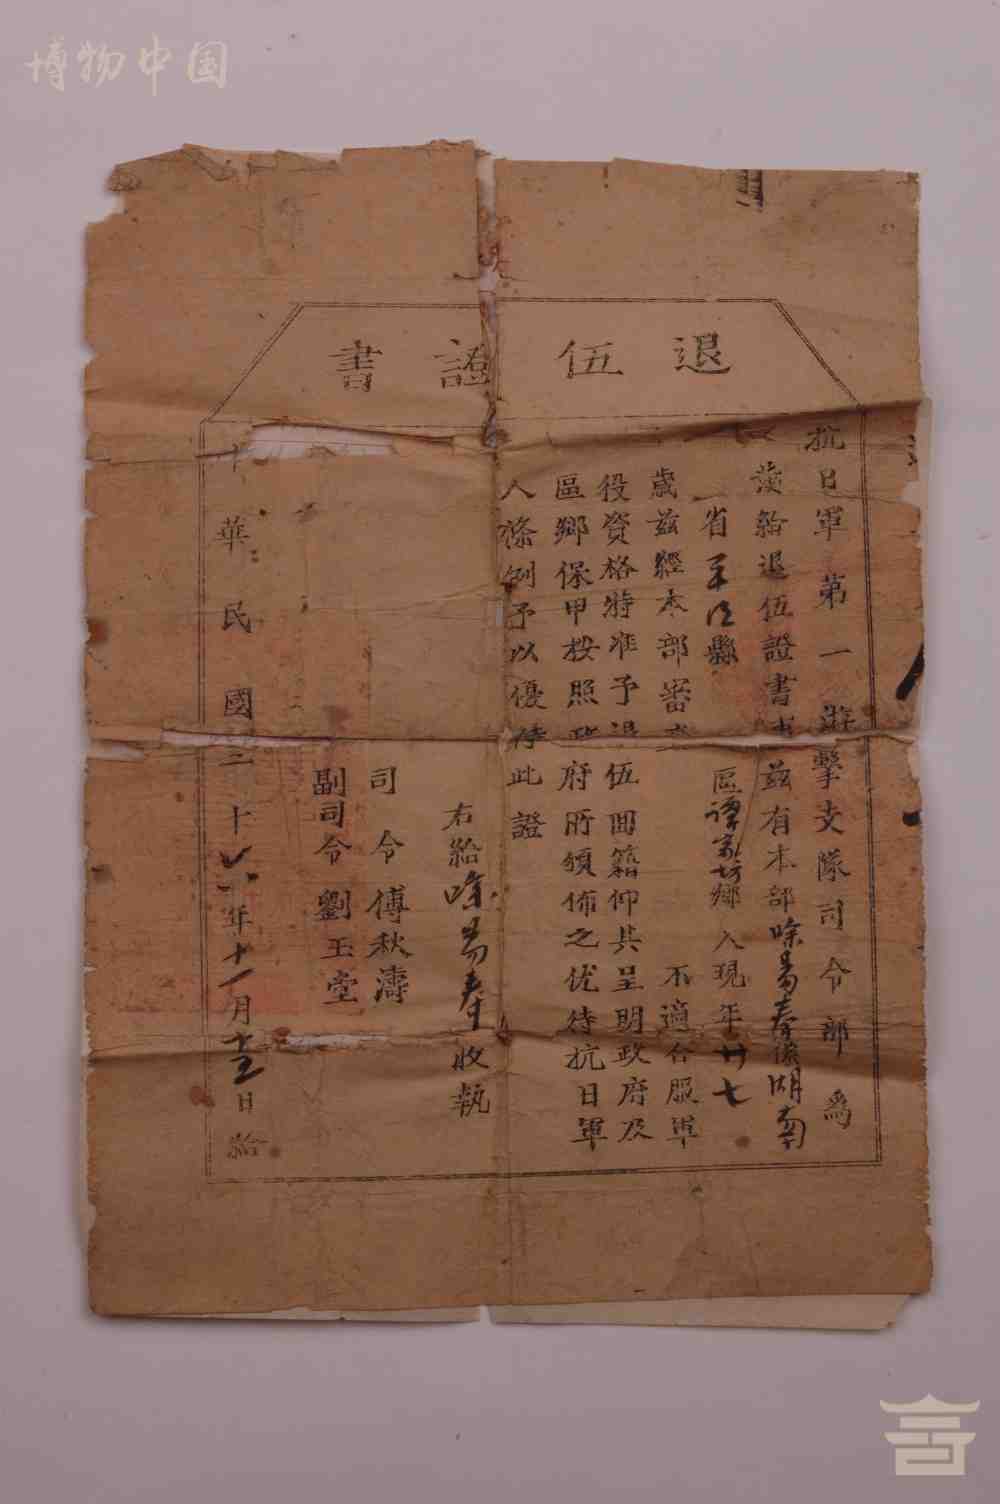 博物中国
退伍證書
抗日軍第一游擊支隊司令部為
發給退伍證書事茲有本部喻易奉係湖南
省平江縣 區譚家坊鄉 人現年廿七
歲茲經本部審 不適合服軍
役資格特准予退伍回籍仰其呈明政府及
區鄉保甲按照政府所頒佈之优待抗日軍
人條例予以優待此證
右給喻易奉收執
司令傅秋濤
副司令劉玉堂
華民國二十六年十一月十五日給